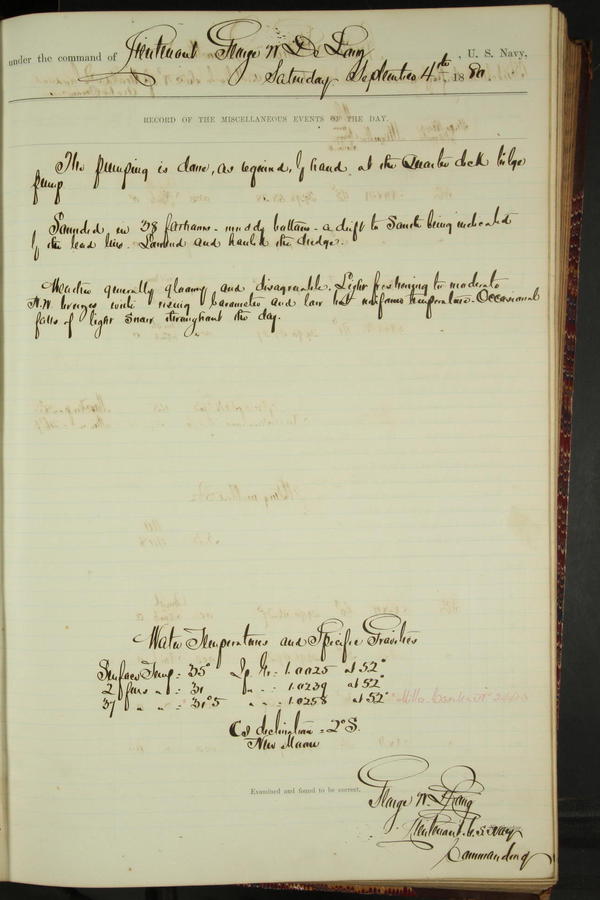 under the command of Lieutenant George W. De Long, U. S. Navy,
Saturday September 4th, 1880.
RECORD OF THE MISCELLANEOUS EVENTS OF THE DAY.
The pumping is done, as required, by hand at the Quarter deck bilge
pump
Sounded in 38 fathoms - muddy bottom - a drift to South being indicated
by the lead line. Lowered and hauled the dredge.
Weather generally gloomy and disagreeable. Light freshening to moderate
N.W. breezes with rising barometer and low but uniform temperature. Occasional
falls of light snow throughout the day.
Water Temperatures and Specific Gravities
Surface Temp = 35° Sp. Gr. = 1.0025 at 52°
2 fms " = 31 " " = 1.0239 at 52°
37 " " = 31°.5 " " = 1.0258 at 52°
☉'s declination = 2° S.
New Moon
Examined and found to be correct.
George W. De Long
Lieutenant U.S. Navy
Commanding